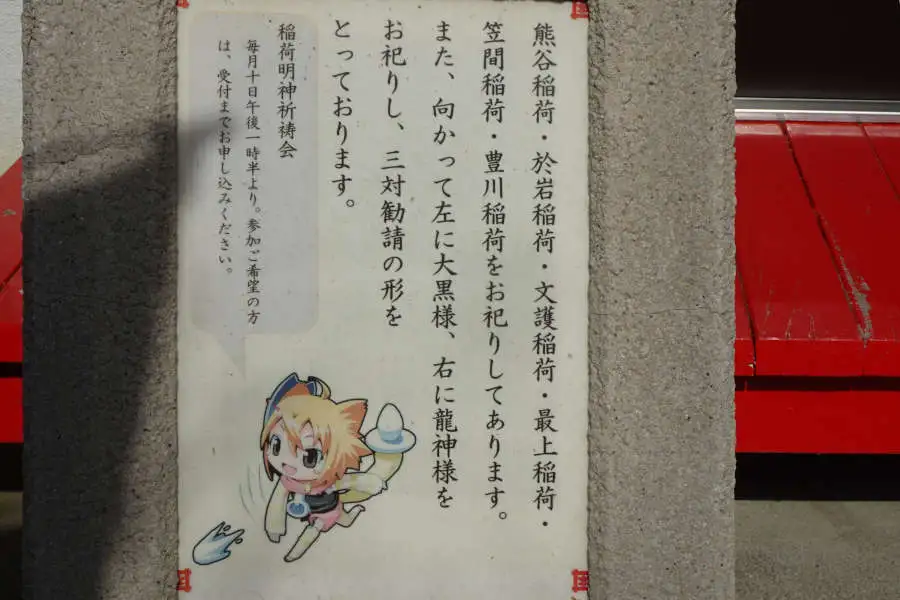 熊谷稲荷・於岩稲荷・文護稲荷・最上稲荷・
笠間稲荷・豊川稲荷をお祀りしてあります。
また、向かって左に大黒様、右に龍神様を
お祀りし、三対勧請の形を
とっております。
稲荷明神祈祷会
毎月十日午後一時半より。参加ご希望の方
は、受付までお申し込みください。